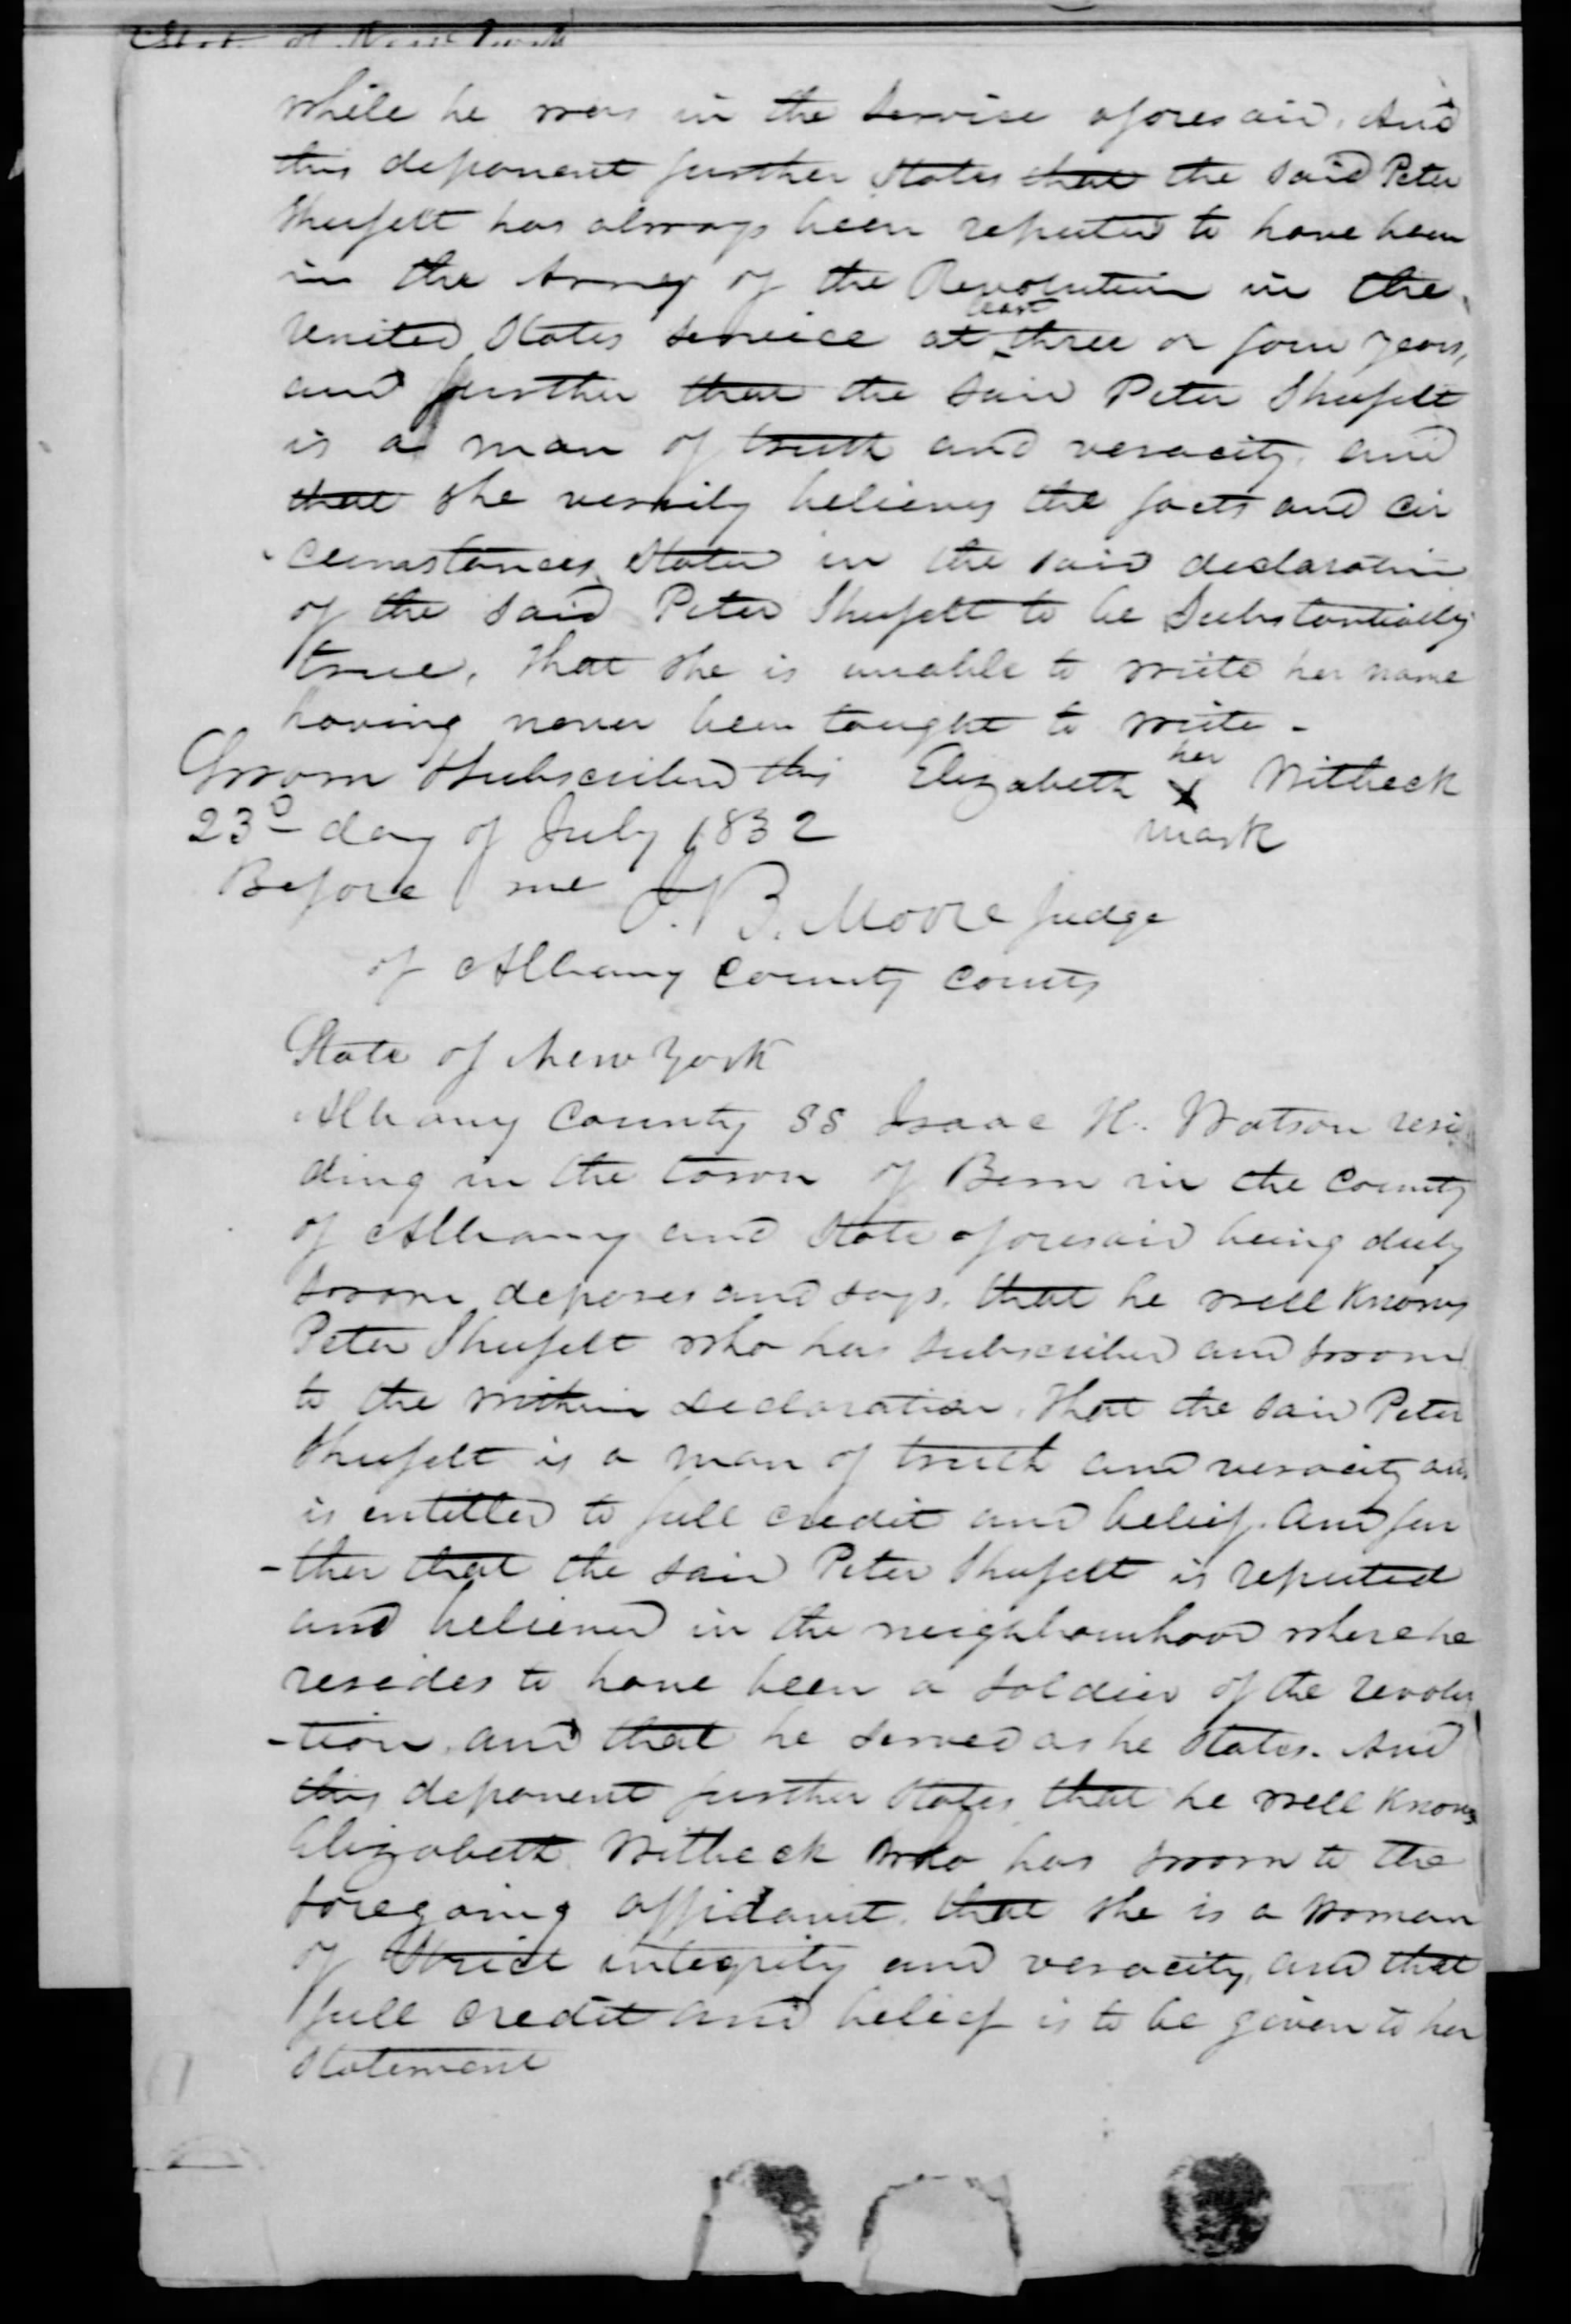 while he was in the Service aforesaid. And
this deponent further States that the said Peter
Shufelt has always been reputed to have been
in the Army of the Revolution in the
United States Service at least three or four years,
and further that the said Peter Shufelt
is a man of truth and veracity and
that she verily believes the facts and cir
-cumstances Stated in the said declaration
of the said Peter Shufelt to be Substantially
true, that she is unable to write her name
having never been taught to write -
Sworn & Subscribed this Elizabeth her X Witbeck
23d day of July 1832 mark
Before me J. B. Moore Judge
of Albany County Courts
State of New York
Albany County SS Isaac H. Watson resi
ding in the town of Bern in the County
of Albany and State aforesaid being duly
sworn deposes and says, that he well knows
Peter Shufelt who has subscribed and sworn
to the within declaration. That the said Peter
Shufelt is a man of truth and veracity and
is entitled to full credit and belief. And fur
-ther that the said Peter Shufelt is reputed
and believed in the neighbourhood where he
resides to have been a soldier of the revolu
-tion, and that he served as he States. And
this deponent further States, that he well knows
Elizabeth Witbeck who has sworn to the
foregoing affidavit, that she is a woman
of Strict integrity and veracity, and that
full credit and belief is to be given to her
Statement